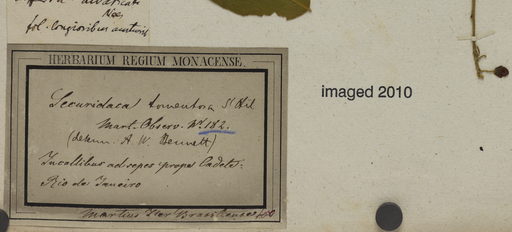 Nees
fol. longioribus
HERBARIUM REGIUM MONACENSE.
Securidaca tomentosa St Hil
Mart. Observ. No. 182.
(determ. A. W. Bennett)
In collibus ad sepes prope Cadete.
Rio de Janeiro
Martius Iter Brasiliense
imaged 2010